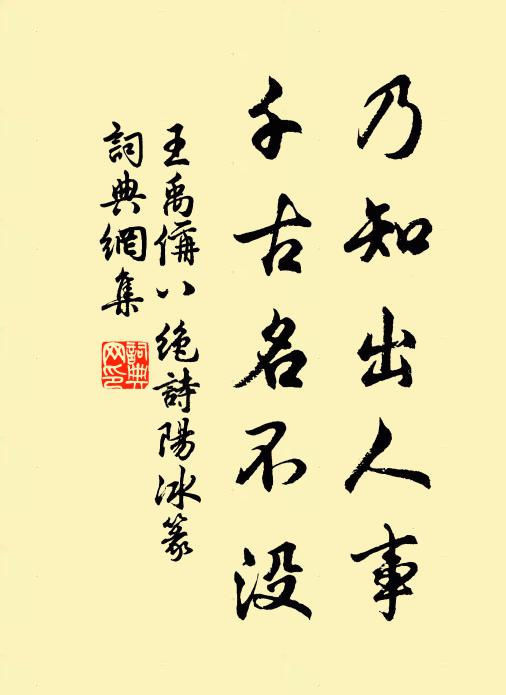 乃知出人事
千古名不没
王禹偁八绝詩陽冰篆
詞典網集
詞典網印